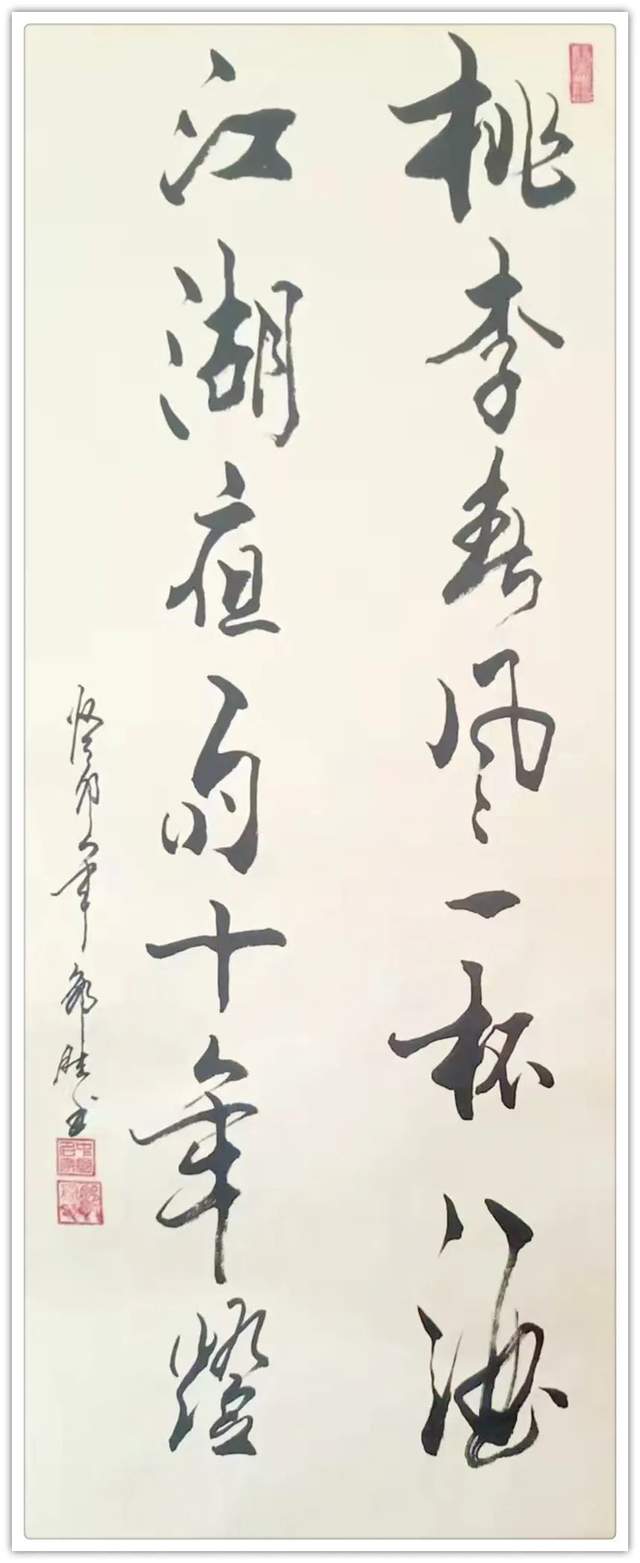 桃李春风一杯酒
江湖夜雨十年燈
癸卯年 胜书